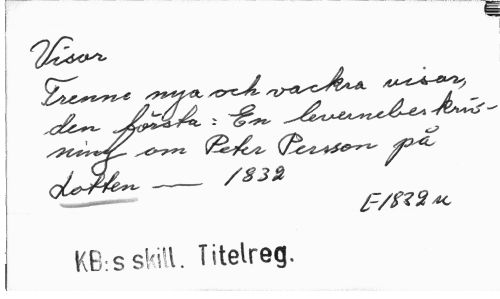 Visor
Trenne nya och vackra visor,
den första: En levernebeskrif-
ning om Peter Persson på
Lotten — 1832
E1832 u
KB:s skill. Titelreg.